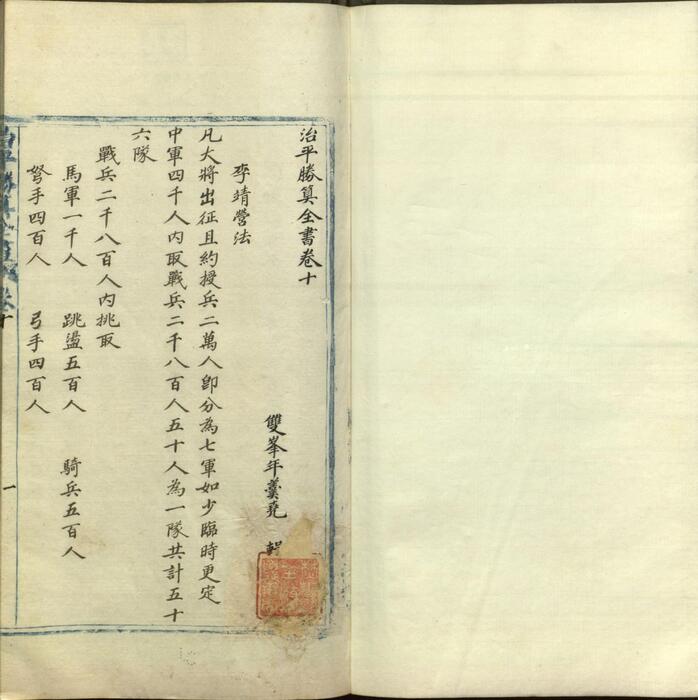 治平勝算全書卷十
雙峯年羹堯 輯
李靖營法
凡大將出征且約授兵二萬人卽分為七軍如少臨時更定
中軍四千人內取戰兵二千八百人五十人為一隊共計五十
六隊
戰兵二千八百人內挑取
馬軍一千人 跳盪五百人 騎兵五百人
弩手四百人 弓手四百人
一